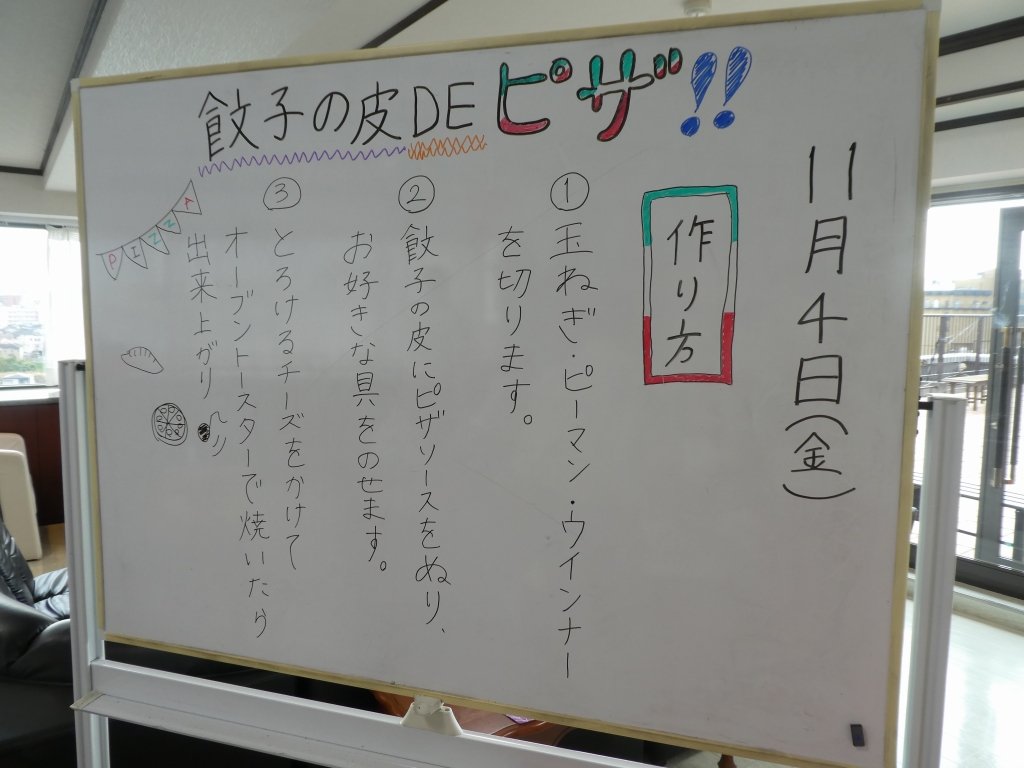 餃子の皮DEピザ!!
11月4日(金)
作り方
①玉ねぎ・ピーマン・ウインナー
を切ります。
②餃子の皮にピザソースをぬり、
お好きな具をのせます。
③とろけるチーズをかけて
オーブントースターで焼いたら
出来上がり
PIZZA